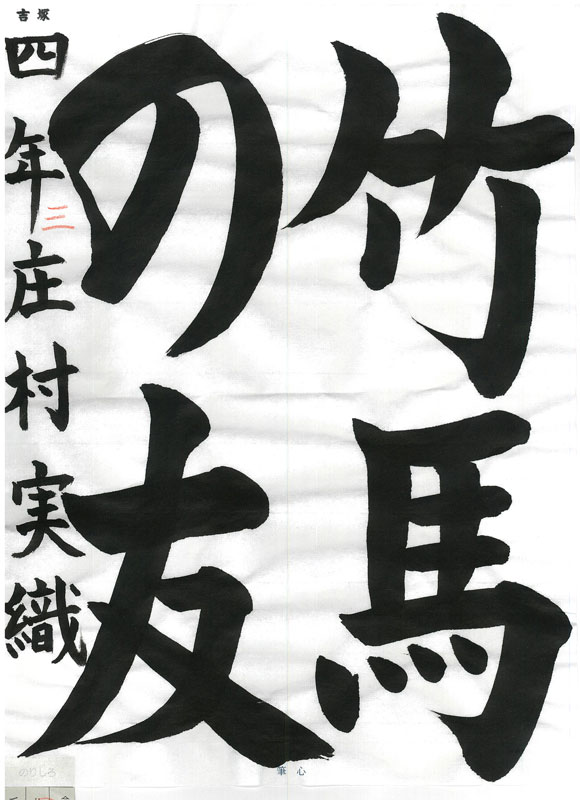 竹馬
の友
四年庄村実織
三
吉塚
のりしろ
筆心